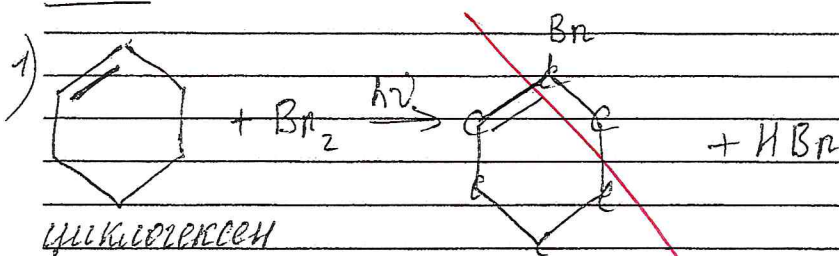 Br
1) + Br₂ hν → C C C C C C + HBr
циклогексен